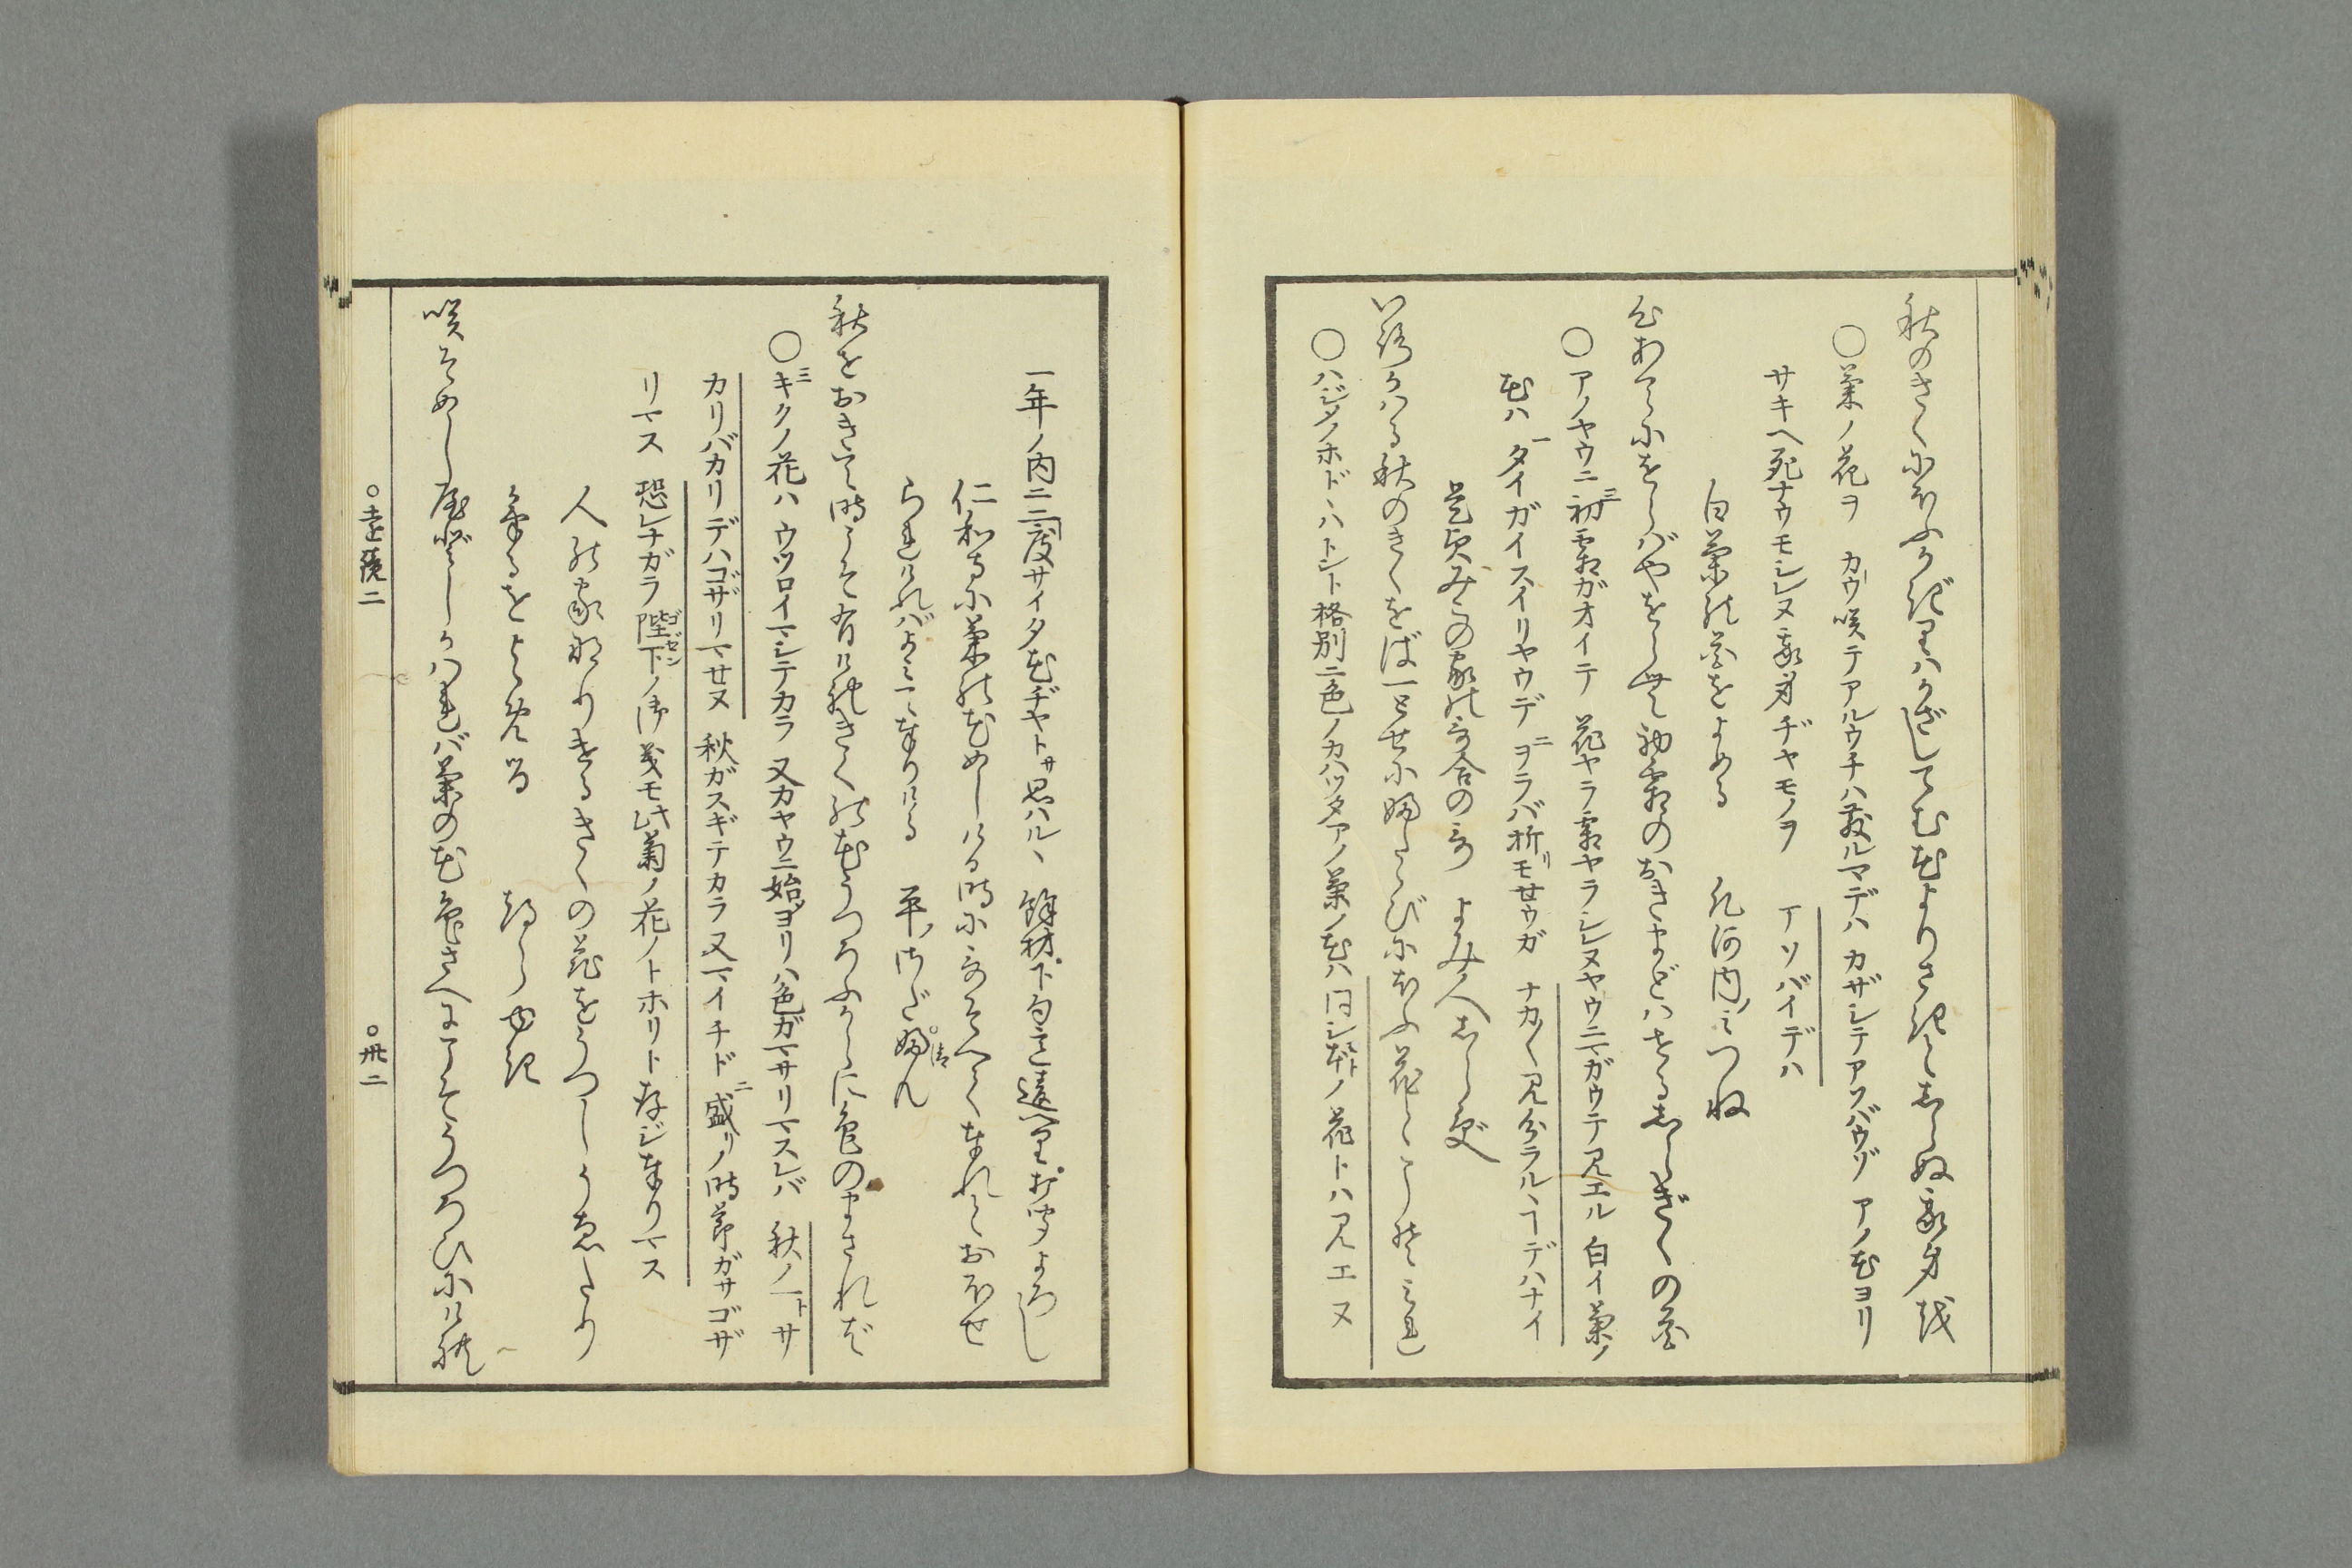 秋のきくにほふかぎりはかざしてむ花よりさきとしらぬ我身を
○菊ノ花ヲ カウ咲テアルウチハ散ルマデハ カザシテアソバウゾ アノ花ヨリ
サキヘ死ナウモシレヌ我身ヂヤモノヲ アソバイデハ
白菊の花をよめる 凡河内ノみつね
心あてにをらばやをらむ初霜のおきまどはせるしらぎくの花
○アノヤウニ三初霜ガオイテ 花ヤラ霜ヤラシレヌヤウニマガウテ見エル 白イ菊ノ
花ハ 一タイガイスイリヤウデ 二ヲラバ折リモセウガ ナカ〳〵見分ラルヽコトデハナイ
是貞みこの家の歌合の歌 よみ人しらず
いろかはる秋のきくをば一とせにふたゝびにほふ花とこそみれ
○ハジメノホドヽハトント格別ニ色ノカハツタアノ菊ノ花ハ 同シ本ノ花トハ見エヌ
一年ノ内ニ二度サイタ花ヂヤトサ思ハルヽ 餘材下句之遠里打聞よろし
仁和寺に菊の花めしける時に歌そへて奉れとおほせ
られければよみて奉りける 平ノさだふん
秋をおきて時こそ有けれきくの花うつろふからに色のまされば
○三キクノ花ハ ウツロイマシテカラ 又カヤウニ始ヨリハ色ガマサリマスレバ 秋ノコトサ
カリバカリデハゴザリマセヌ 秋ガスギテカラ又マイチド 二盛リノ時節ガサゴザ
リマス 恐レナガラ陛下ゴゼンノ御義モ此菊ノ花ノトホリト存ジ奉リマス
人の家なりけるきくの花をうつしうゑたり
けるをよめる つらゆき
咲そめし屋どしかはれば菊の花色さへにこそうつろひにけれ
○遠鏡二 ○卅二